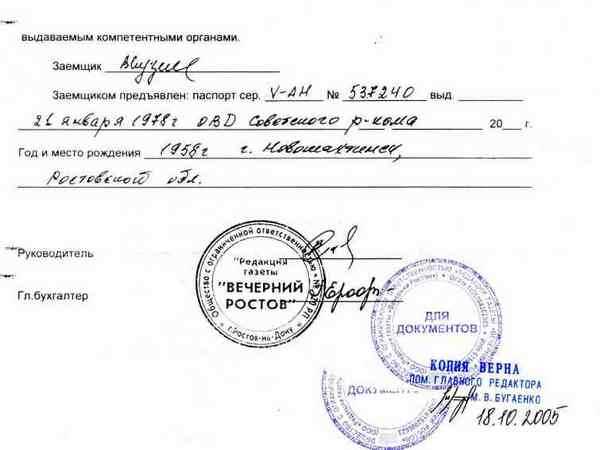 выдаваемым компетентными органами.
Заемщик
Заемщиком предъявлен: паспорт сер. V-АН № 537240 выд.
21 января 1978г ОВД Советского р-кома 20 г.
Год и место рождения 1958г г. Новошахтинск,
Ростовской обл.
Руководитель
Гл.бухгалтер
Общество с ограниченной ответственностью
"Редакция
газеты
"ВЕЧЕРНИЙ
РОСТОВ"
г.Ростов-на-Дону
ДЛЯ
ДОКУМЕНТОВ
КОПИЯ ВЕРНА
ПОМ. ГЛАВНОГО РЕДАКТОРА
М. В. БУГАЕНКО
18.10.2005